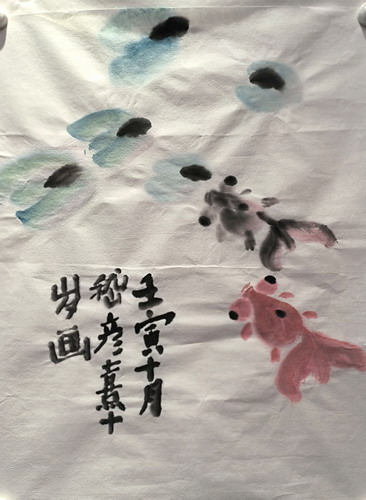 壬寅十月
嵇彦熹十
岁画